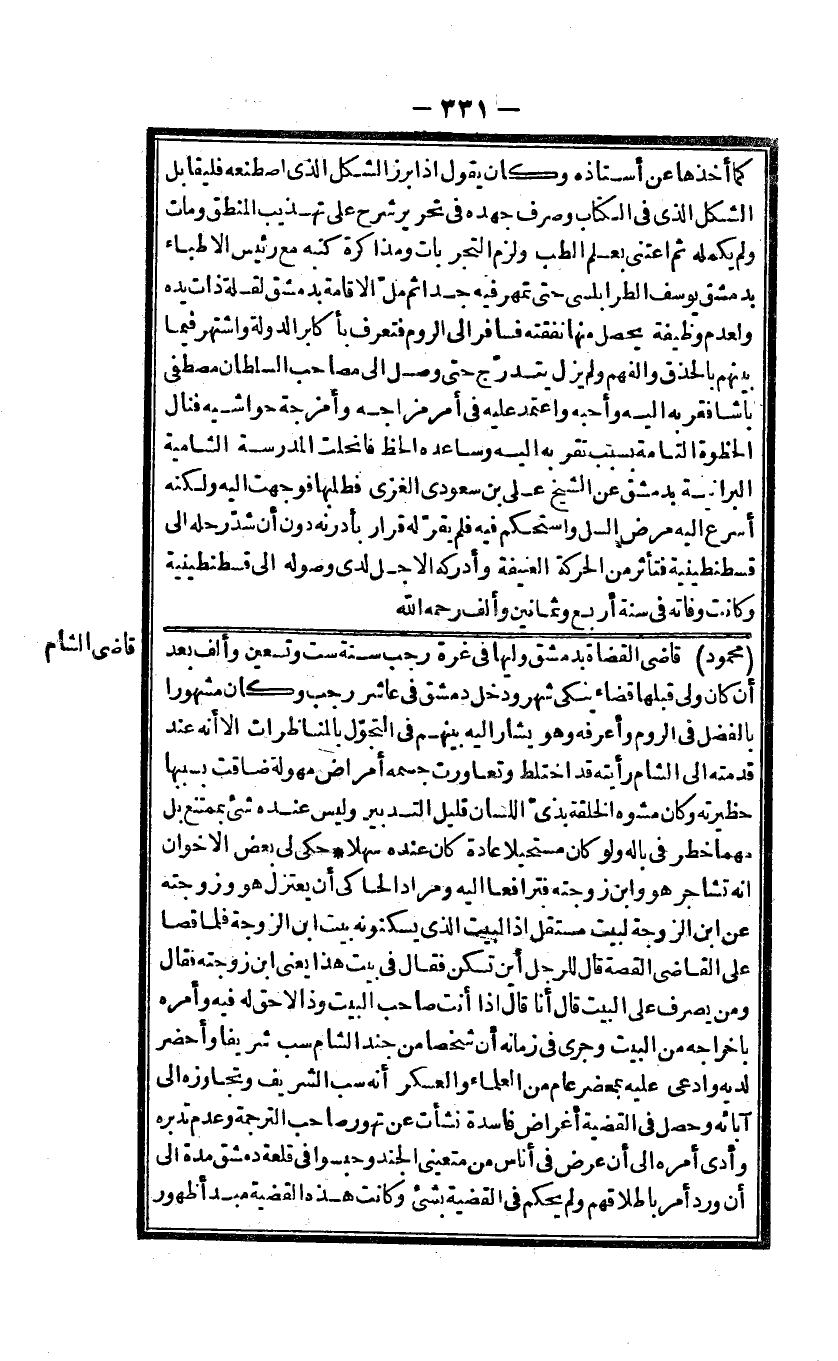 — ٣٣١ —
كما أخذها عن أستاذه وكان يقول اذا برز الشكل الذى اصطنعه فليقابل
الشكل الذى فى الكتاب وصرف جهده فى تحرير شرح على تهذيب المنطق ومات
ولم يكمله ثم اعتنى بعلم الطب ولزم التجربات ومذاكرة كتبه مع رئيس الاطباء
بدمشق يوسف الطرابلسى حتى تمهر فيه جدا ثم ملّ الاقامة بدمشق لقلة ذات يده
ولعدم وظيفة يحصل منها نفقته فسافر الى الروم فتعرف بأكابر الدولة واشتهر فيما
بينهم بالحذق والفهم ولم يزل يتدرّج حتى وصل الى مصاحب السلطان مصطفى
باشا فقربه اليه وأحبه واعتمد عليه فى أمر مزاجه وأمزجة حواشيه فنال
الحظوة التامة بسبب تقربه اليه وساعده الحظ فانحلت المدرسة الشامية
البرانية بدمشق عن الشيخ على بن سعودى الغزى فطلبها فوجهت اليه ولكنه
أسرع اليه مرض السل واستحكم فيه فلم يقرّ له قرار بأدرنه دون أن شدّ رحله الى
قسطنطينية فتأثر من الحركة العنيفة وأدركه الاجل لدى وصوله الى قسطنطينية
وكانت وفاته فى سنة أربع وثمانين وألف رحمه الله
قاضى الشام
(محمود) قاضى القضاة بدمشق وليها فى غرة رجب سنة ست وتسعين وألف بعد
أن كان ولى قبلها قضاء ينكى شهر ودخل دمشق فى عاشر رجب وكان مشهورا
بالفضل فى الروم وأعرفه وهو يشار اليه بينهم فى التجوّل بالمناظرات الا أنه عند
قدمته الى الشام رأيته قد اختلط وتعاورت جسمه أمراض مهولة ضاقت بسببها
حظيرته وكان مشوه الخلقة بذىّ اللسان قليل التدبير وليس عنده شئ بممتنع بل
مهما خطر فى باله ولو كان مستحيلا عادة كان عنده سهلا * حكى لى بعض الاخوان
انه تشاجر هو وابن زوجته فترافعا اليه ومراد الحاكى أن يعتزل هو وزوجته
عن ابن الزوجة لبيت مستقل اذ البيت الذى يسكنونه بيت ابن الزوجة فلما قصا
على القاضى القصة قال للرجل أين تسكن فقال فى بيت هذا يعنى ابن زوجته فقال
ومن يصرف على البيت قال أنا قال اذا أنت صاحب البيت وذا لاحق له فيه وأمره
باخراجه من البيت وجرى فى زمانه أن شخصا من جند الشام سب شريفا وأحضر
لديه وادعى عليه بمحضر عام من العلماء والعسكر أنه سب الشريف وتجاوزه الى
آبائه وحصل فى القضية أغراض فاسدة نشأت عن تهور صاحب الترجمة وعدم تدبره
وأدى أمره الى أن عرض فى أناس من متعينى الجند وحبسوا فى قلعة دمشق مدة الى
أن ورد أمر باطلاقهم ولم يحكم فى القضية بشئ وكانت هذه القضية مبدأ ظهور